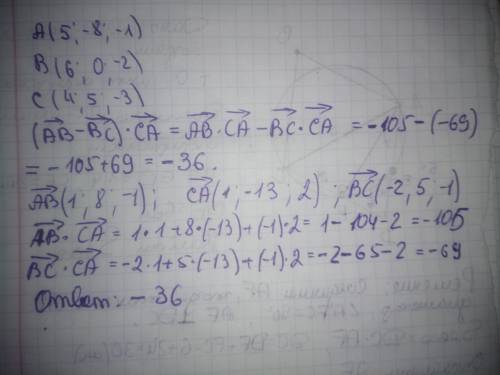 A(5; -8; -1)
B(6; 0; -2)
C(4; 5; -3)
(AB - BC)·CA = AB·CA - BC·CA = -105-(-69)
= -105+69 = -36.
AB(1; 8; -1); CA(1; -13; 2); BC(-2, 5, -1)
AB·CA = 1·1+8·(-13)+(-1)·2= 1-104-2=-105
BC·CA=-2·1+5·(-13)+(-1)·2=-2-65-2=-69
Ответ: -36